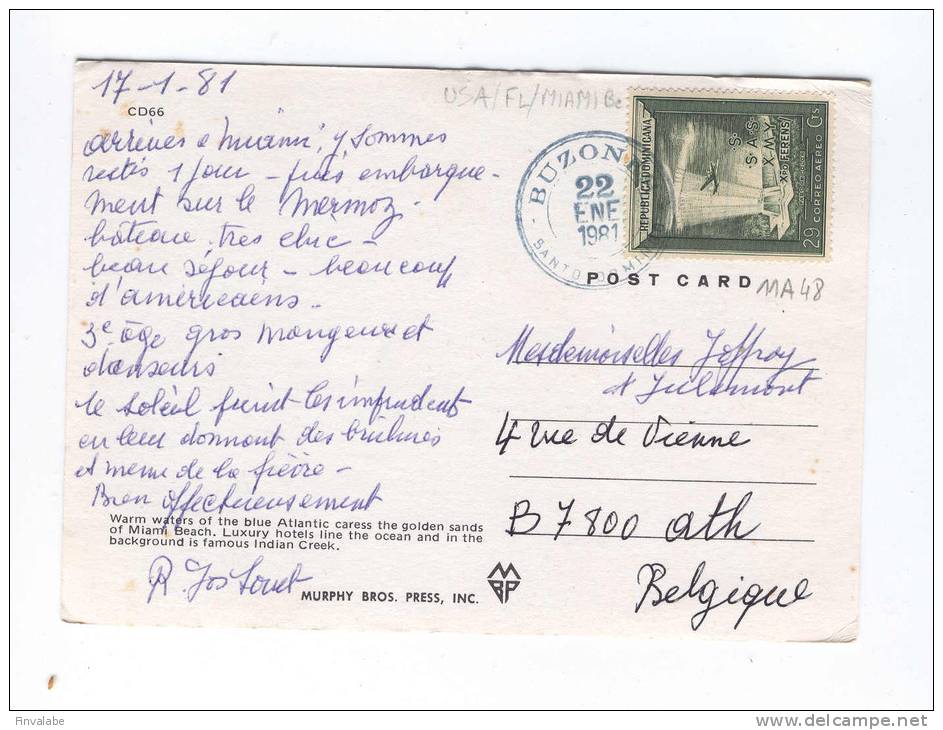 17-1-81
CD66
USA/FL/MIAMI Be
arrivées à Miami, y sommes
restés 1 jour - puis embarque-
ment sur le Mermoz -
bateau très chic -
beau séjour - beaucoup
d'américains -
3e âge gros mangeurs et
danseurs
le soleil punit les imprudents
en leur donnant des brûlures
et même de la fièvre -
Bien affectueusement
Warm waters of the blue Atlantic caress the golden sands
of Miami Beach. Luxury hotels line the ocean and in the
background is famous Indian Creek.
R.
MURPHY BROS. PRESS, INC.
MBP
BUZON
22
ENE
1981
SANTO DOMIN
REPUBLICA DOMINICANA
S.
S. A. S.
X M Y
XPO FERENS
29 CORREO AEREO Cts
POST CARD
MA48
Mesdemoiselles Joffroy
et
4 rue de Vienne
B 7800 Ath
Belgique
finvalabe
www.delcampe.net